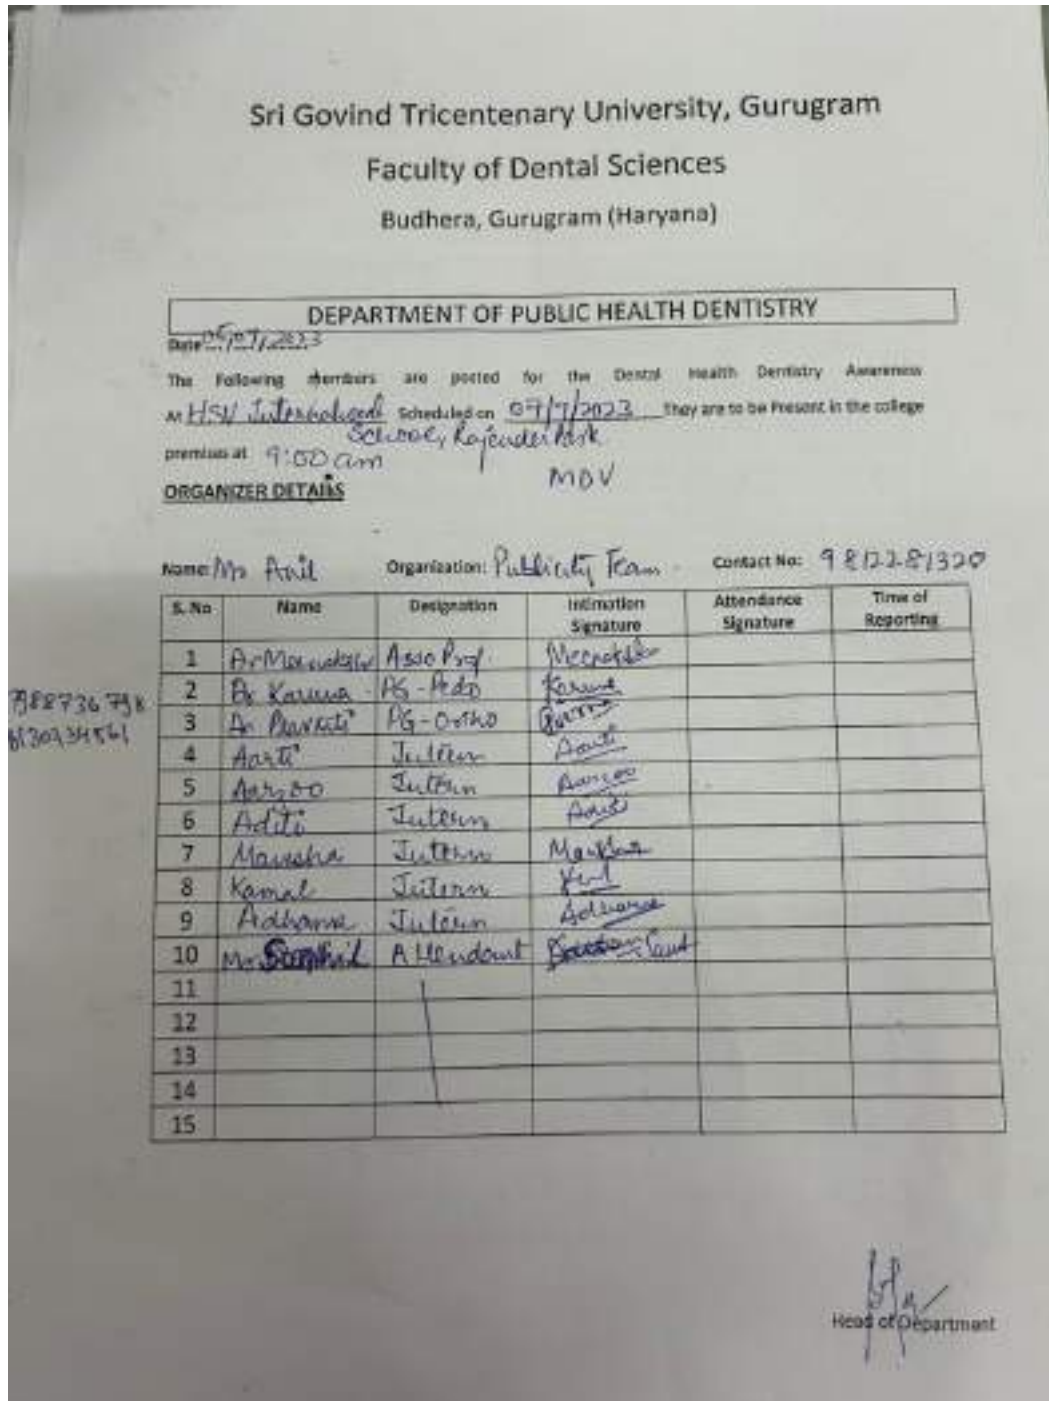 Sri Govind Tricentenary University, Gurugram
Faculty of Dental Sciences
Budhera, Gurugram (Haryana)
DEPARTMENT OF PUBLIC HEALTH DENTISTRY
Date 05/07/2023
The Following members are posted for the Dental Health Dentistry Awareness
At HSV International Scheduled on 07/7/2023 They are to be Present in the college
School, Rajender Park
premises at 9:00 am
MDV
ORGANIZER DETAILS
Name: Mr Anil Organization: Publicity Team Contact No: 9812281320
S. No Name Designation Intimation Signature Attendance Signature Time of Reporting
1 Dr Asso Prof.
2 Dr Karuna PG - Pedo Karuna
3 Dr PG - Ortho
4 Aarti Intern Aarti
5 Aarzoo Intern Aarzoo
6 Aditi Intern Aditi
7 Manisha Intern
8 Kamal Intern
9 Intern
10 Mr Attendant
11
12
13
14
15
Head of Department